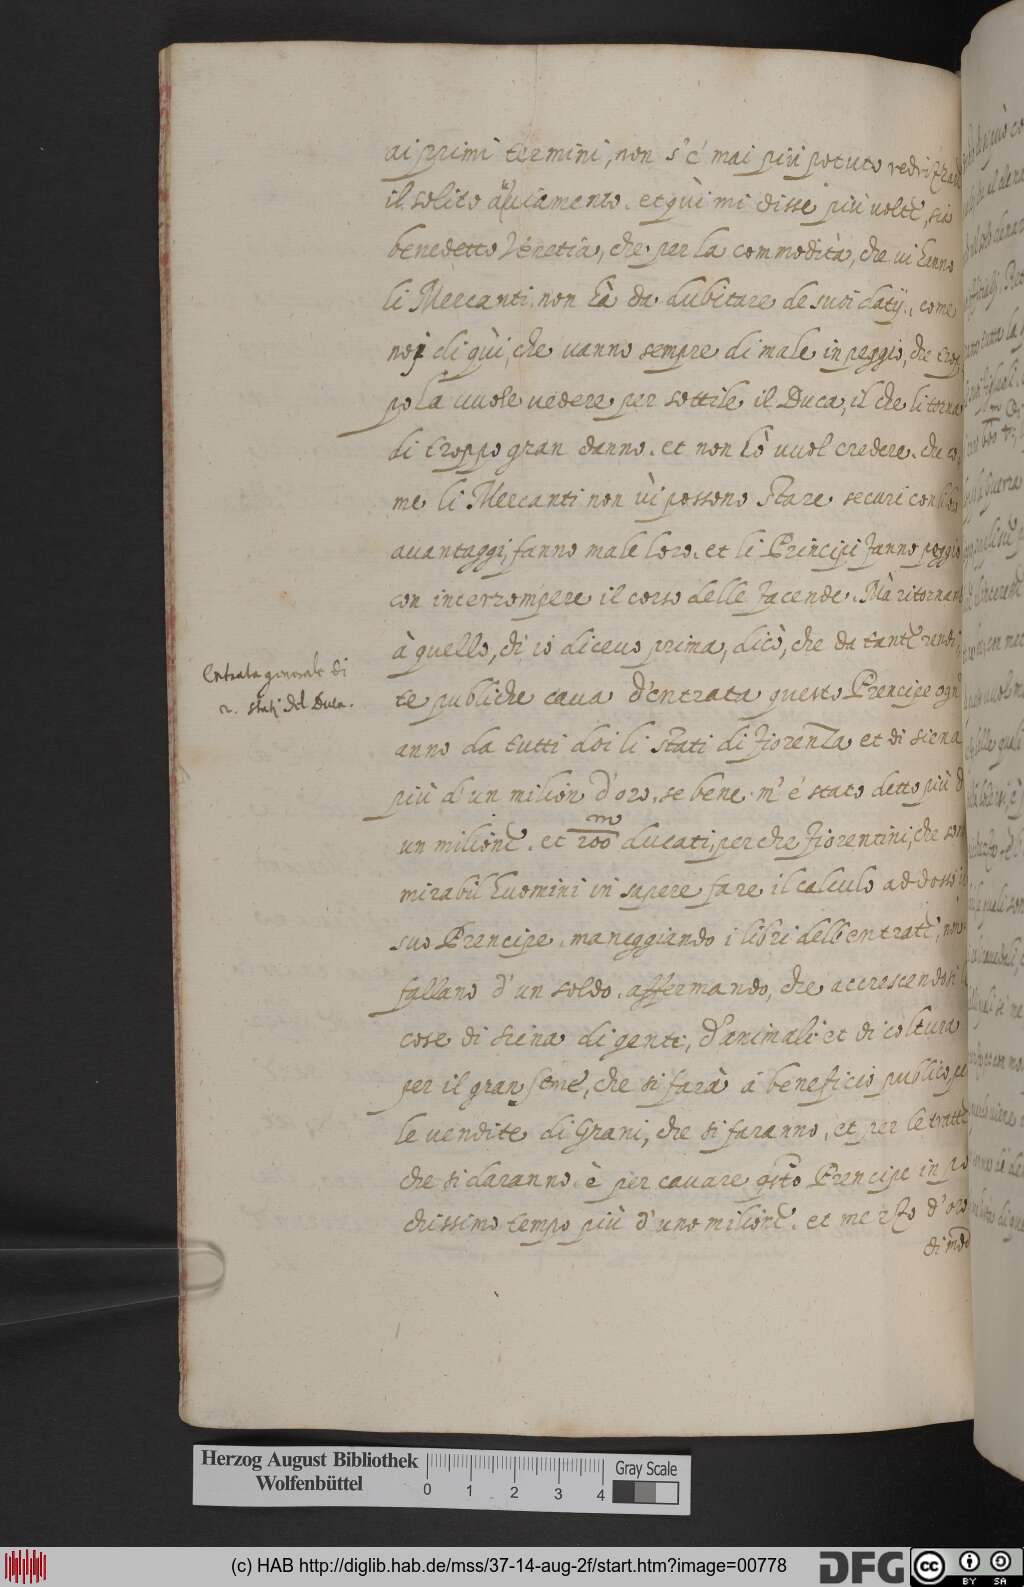 ai primi termini, non s'é mai più potuto redrizzare
il solito auuiamento. et quì mi disse più uolte, sia
benedetto Venetia, che per la commodità, che ui hanno
li Mercanti non hà da dubitare de suoi datij, come
noi di quì, che uanno sempre di male in peggio, che trop
po la uuole uedere per sottile il Duca, il che li torna
di troppo gran danno. et non lò uuol credere. che co,
me li Mercanti non ùi possono stare securi con li loro
auantaggi, fanno male loro. et li Principi fanno peggio
con interrompere il corso delle facende. Mà ritornando
à quello, di io diceuo prima, dicò, che da tante rendi,
Entrata generale di
2. statj del Duca.
te publiche caua d'entrata questo Prencipe ogn'
anno da tutti doi li stati di Fiorenza et di Siena
più d'un milion d'oro, se bene m'é stato detto più d'
un milione. et 200 m ducati, perche Fiorentini, che sono
mirabil huomini in sapere fare il calculo addosso il
suo Prencipe. maneggiando i libri dell'entrate, non
fallano d'un soldo. affermando, che accrescendosi le
cose di Siena di gente, d'animali et di coltura
per il gran seme, che si farà á beneficio publico, per
le vendite di Grani, che si faranno, et per le tratte
che si daranno. è per cauare qsto Prencipe in po
chissimo tempo più d'uno milione. et mezzo d'oro
di modo
Herzog August Bibliothek
Wolfenbüttel
0 1 2 3 4
Gray Scale
(c) HAB http://diglib.hab.de/mss/37-14-aug-2f/start.htm?image=00778
DFG
cc BY SA